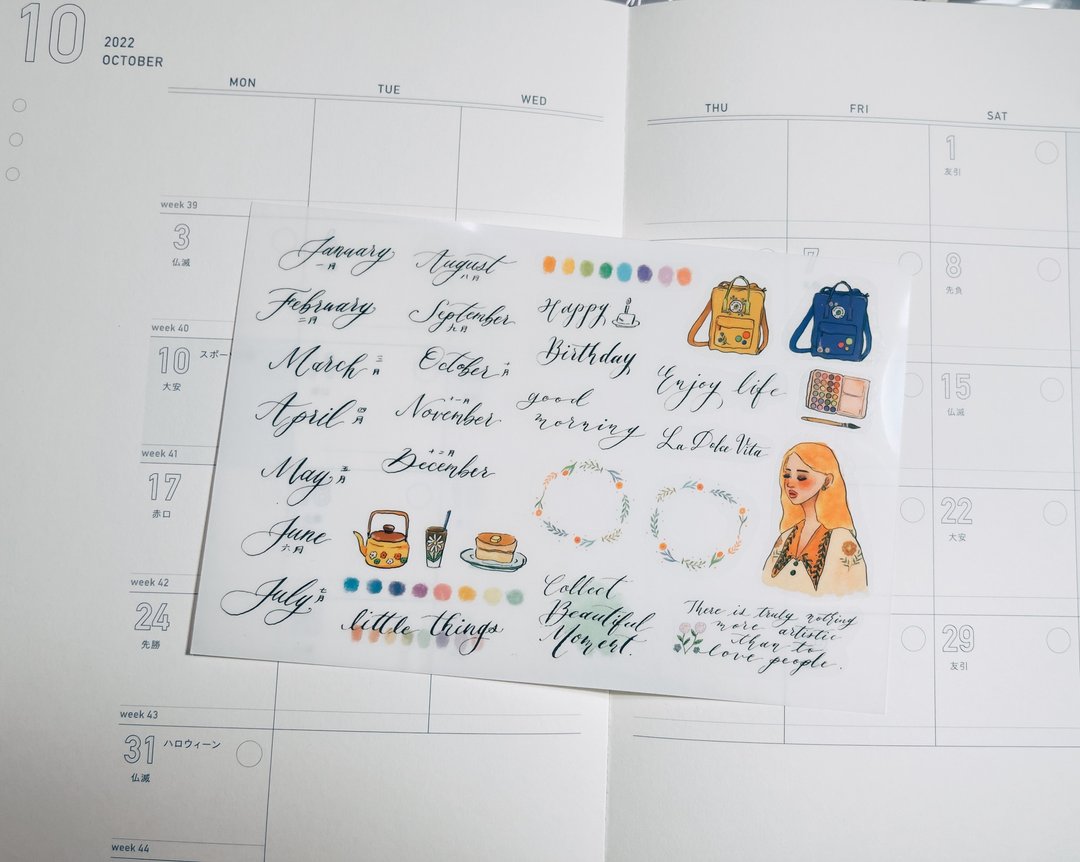 10
2022
OCTOBER
MON
TUE
WED
THU
FRI
SAT
1
友引
week 39
3
仏滅
7
8
先負
week 40
10
スポー
大安
15
仏滅
week 41
17
赤口
22
大安
week 42
24
先勝
29
友引
week 43
31
ハロウィーン
仏滅
week 44
January
一月
February
二月
March
三月
April
四月
May
五月
June
六月
July
七月
August
八月
September
九月
October
十月
November
十一月
December
十二月
Happy
Birthday
good
morning
Enjoy life
La Dolce Vita
little things
Collect
Beautiful
Moment.
There is truly nothing
more artistic
than to
love people.